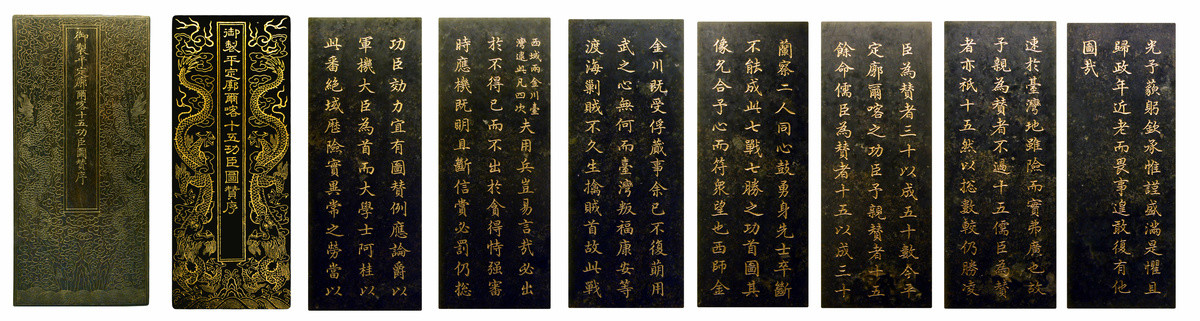 御製平定廓爾喀十五功臣圖贊序
御製平定廓爾喀十五功臣圖贊序
功臣効力宜有圖贊例應論爵以
軍機大臣為首而大學士阿桂以
此番絕域歷險實異常之勞當以
西域兩金川臺
灣凡四次
夫用兵豈易言哉必出
於不得已而不出於貪得恃强審
時應機既明且斷信賞必罰仍揔
金川既受俘蕆事余已不復萌用
武之心無何而臺灣叛福康安等
渡海剿賊不久生擒賊首故此戰
蘭察二人同心鼓勇身先士卒斷
不能成此七戰七勝之功首圖其
像允合予心而符衆望也西師金
臣為贊者三十以成五十數今平
定廓爾喀之功臣予親贊者十五
餘命儒臣為贊者十五以成三十
速於臺灣地雖險而實弗廣之故
予親為贊者不過十五儒臣為贊
者亦祇十五然以揔數較仍勝凌
光予藐躬欽承惟謹盛滿是懼且
歸政年近老而畏事遑敢復有他
圖哉